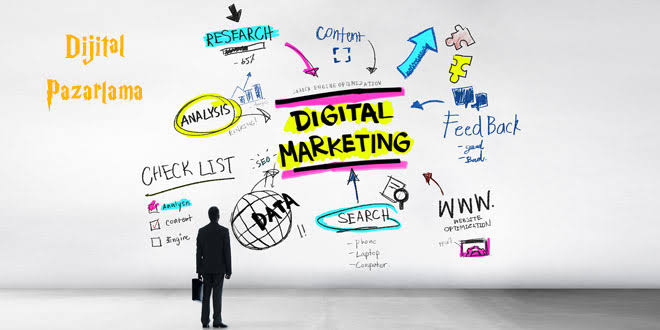 Dijital
Pazarlama
RESEARCH
Content
ANALYSIS
SEARCH ENGINE OPTIMIZATION
DIGITAL
MARKETING
FeedBack
- good
- Bad
CHECK LIST
Analysis
Content
Engine
SEO
DATA
!!
SEARCH
- phone
- Laptop
- Computer
WWW.
WEBSITE
OPTIMIZATION